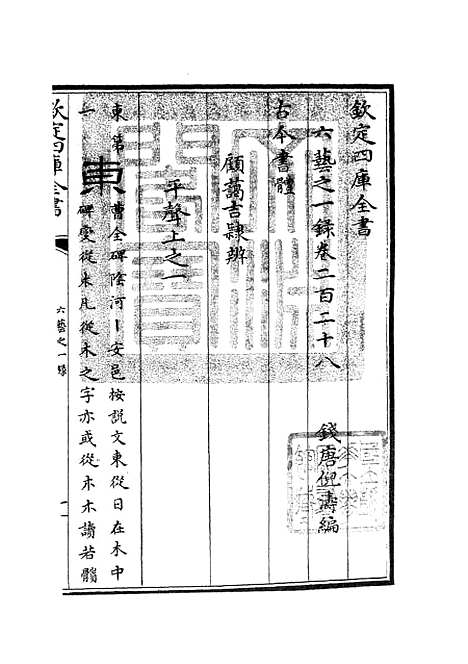 欽定四庫全書
六藝之一録卷二百二十八
錢唐倪濤編
古今書體
顧藹吉隸辨
平聲上之一
東第一
東
曹全碑陰河丨安邑按説文東從日在木中
碑變從木凡從木之字亦或從朩朩讀若髕
欽定四庫全書
六藝之一録
一